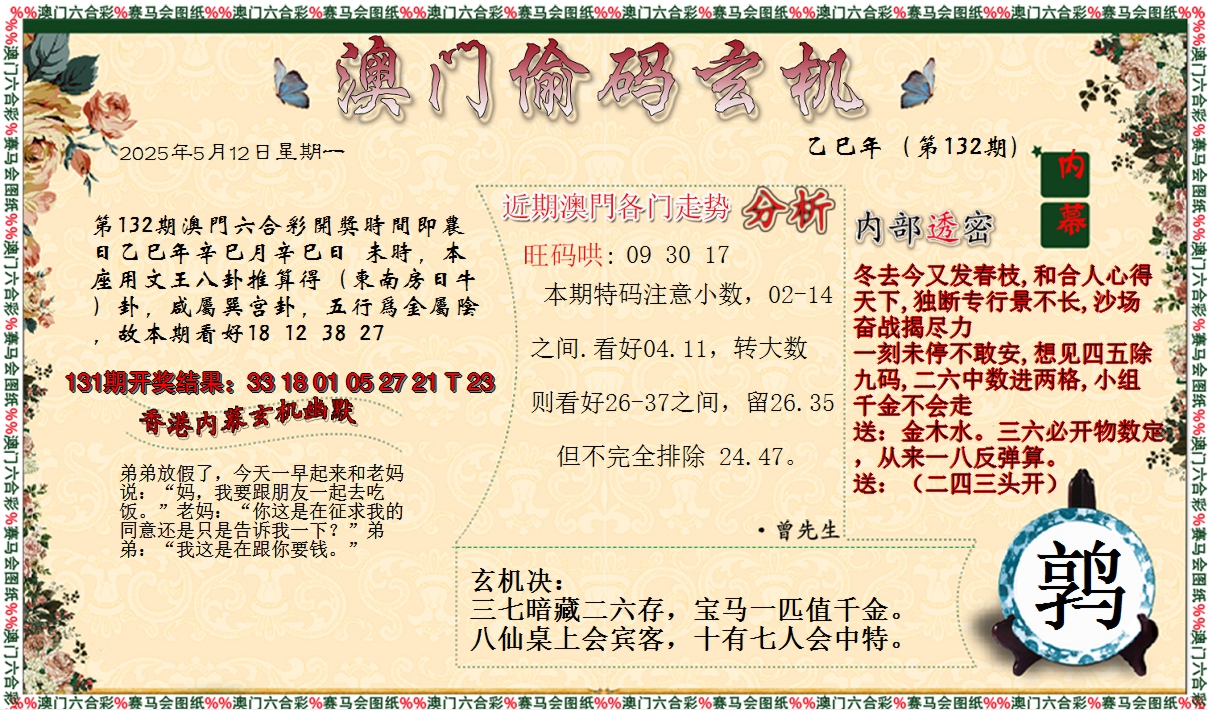 %%澳门六合彩%赛马会图纸%%澳门六合彩%赛马会图纸%%澳门六合彩%赛马会图纸%%澳门六合彩%赛马会图纸%%澳门六合彩%赛马会图纸%%澳门六合彩%赛马会图纸%%
澳门偷码玄机
2025年5月12日星期一
乙巳年（第132期）
内
幕
第132期澳門六合彩開獎時間即農
日乙巳年辛巳月辛巳日 未時，本
座用文王八卦推算得（東南房日牛
）卦，咸屬巽宫卦，五行爲金屬陰
，故本期看好18 12 38 27
131期开奖结果：33 18 01 05 27 21 T 23
香港内幕玄机幽默
弟弟放假了，今天一早起来和老妈
说：“妈，我要跟朋友一起去吃
饭。”老妈：“你这是在征求我的
同意还是只是告诉我一下？”弟
弟：“我这是在跟你要钱。”
近期澳門各门走势 分析
旺码哄: 09 30 17
本期特码注意小数，02-14
之间.看好04.11，转大数
则看好26-37之间，留26.35
但不完全排除 24.47。
·曾先生
内部透密
冬去今又发春枝,和合人心得
天下,独断专行景不长,沙场
奋战揭尽力
一刻未停不敢安,想见四五除
九码,二六中数进两格,小组
千金不会走
送：金木水。三六必开物数定
，从来一八反弹算。
送：（二四三头开）
玄机决：
三七暗藏二六存，宝马一匹值千金。
八仙桌上会宾客，十有七人会中特。
鹑
%%澳门六合彩%赛马会图纸%%澳门六合彩%赛马会图纸%%澳门六合彩%赛马会图纸%%澳门六合彩%赛马会图纸%%澳门六合彩%赛马会图纸%%澳门六合彩%赛马会图纸%%